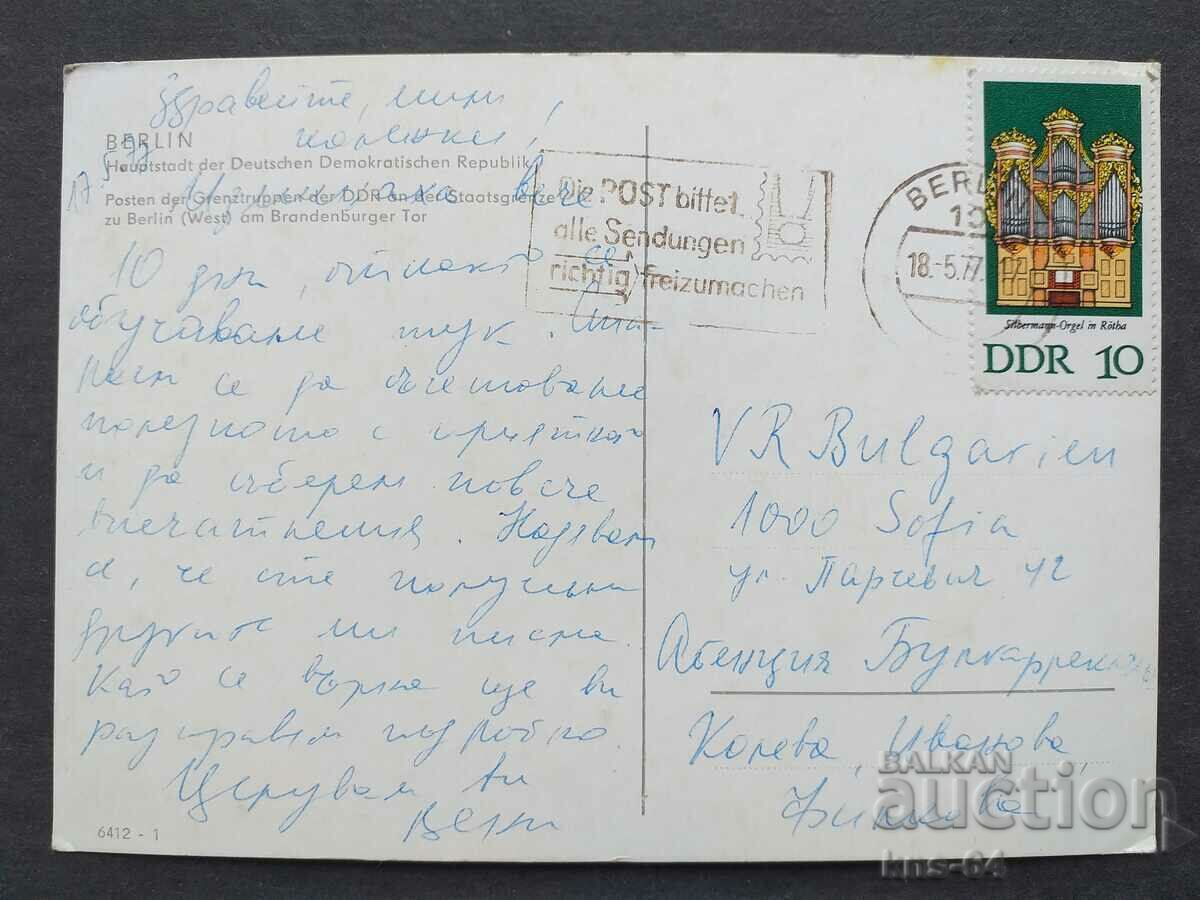 Здравейте, мили
колежки!
BERLIN
Hauptstadt der Deutschen Demokratischen Republik
17.5.77
Posten der Grenztruppen der DDR an der Staatsgrenze
zu Berlin (West) am Brandenburger Tor
вече
10 дни, откакто се
обучаваме тук. Опи-
тваме се да съчетаваме
полезното с приятното
и да съберем повече
впечатления. Надявам
се, че сте получили
другите ми писма.
Като се върна ще ви
разправям подробно.
Целувам ви
Die POST bittet
alle Sendungen
richtig freizumachen
BERLIN
18.-5.77
Silbermann-Orgel in Rötha
DDR 10
VR Bulgarien
1000 Sofia
ул. Парчевич 42
Агенция Булгарреклама
Колева, Иванова,
6412 - 1
BALKAN
auction
kns-64